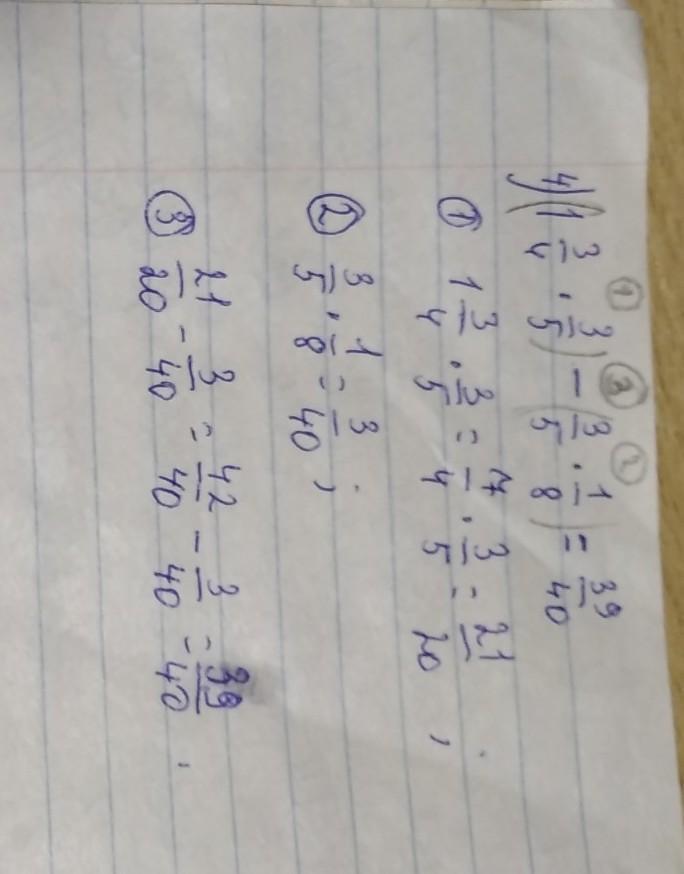 ① ③ ②
4) (1 3/4 · 3/5) - (3/5 · 1/8) = 39/40
① 1 3/4 · 3/5 = 7/4 · 3/5 = 21/20 ;
② 3/5 · 1/8 = 3/40 ;
③ 21/20 - 3/40 = 42/40 - 3/40 = 39/40 .